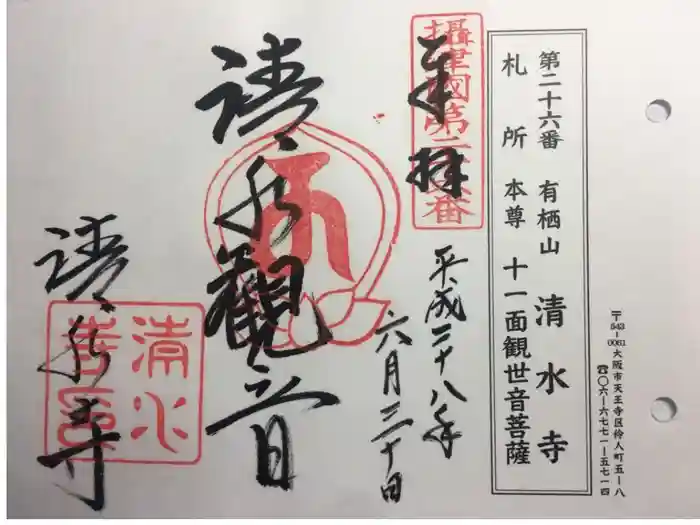 〒543-0061 大阪市天王寺区伶人町五ー八
☎〇六ー六七七一ー五七一四
第二十六番 有栖山 清水寺
札所本尊 十一面観世音菩薩
奉拝
攝津國第二六番
平成二十八年
六月三十日
清水観音
清水寺
清水寺印